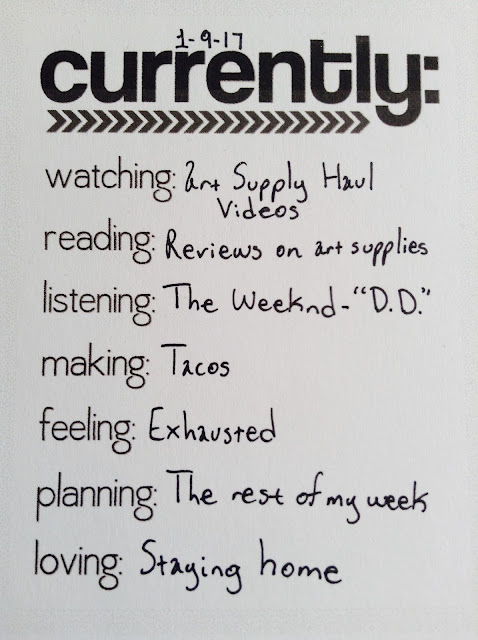 1-9-17
currently:
watching: art Supply Haul
Videos
reading: Reviews on art supplies
listening: The Weeknd - "D.D."
making: Tacos
feeling: Exhausted
planning: The rest of my week
loving: Staying home